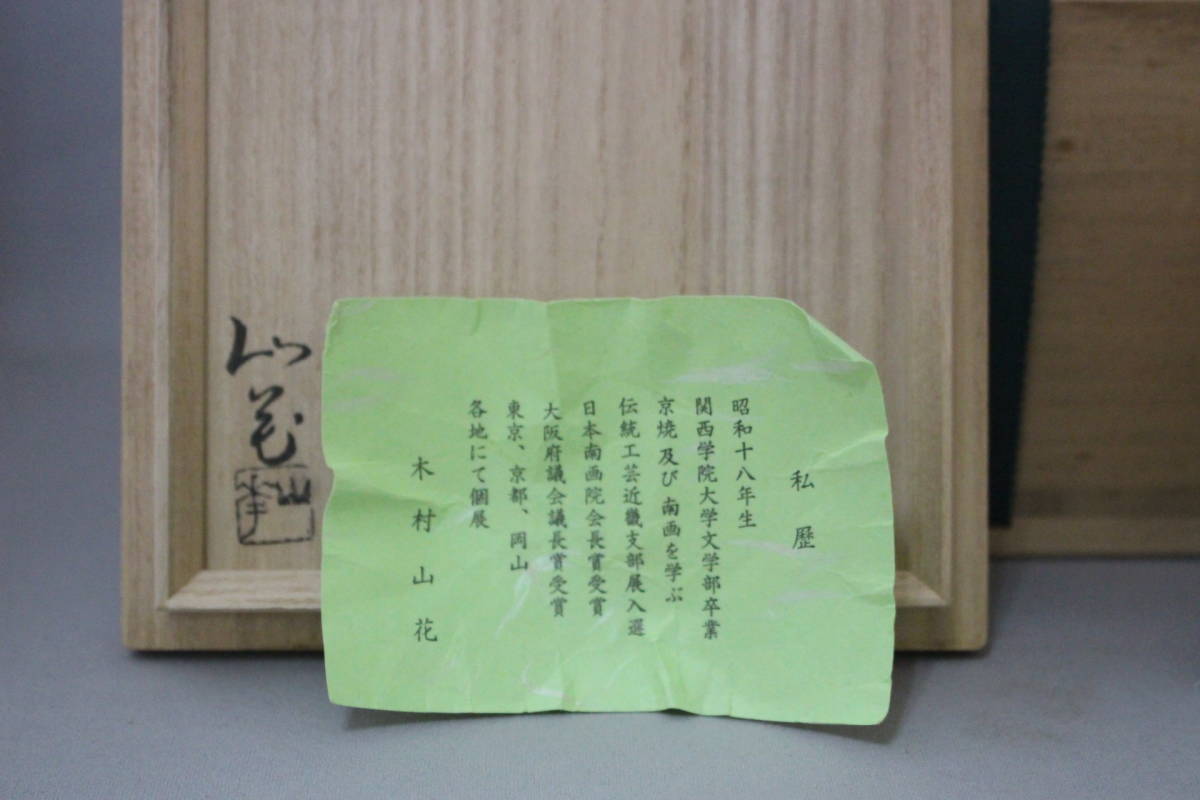 私歴
昭和十八年生
関西学院大学文学部卒業
京焼及び南画を学ぶ
伝統工芸近畿支部展入選
日本南画院会長賞受賞
大阪府議会議長賞受賞
東京、京都、岡山
各地にて個展
木村山花
山花